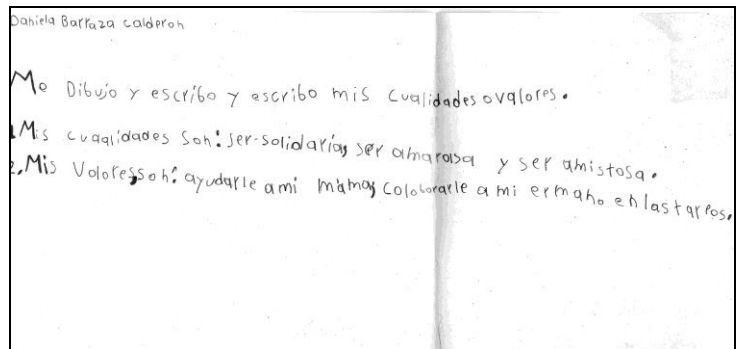 Daniela Barraza Calderon
Me Dibujo y escribo y escribo mis cualidades o valores.
1. Mis cuaqlidades son: ser solidarias, ser amarosa y ser amistosa.
2. Mis Volores, son: ayudarle ami mamas, coloborarle a mi ermano en las tareos.